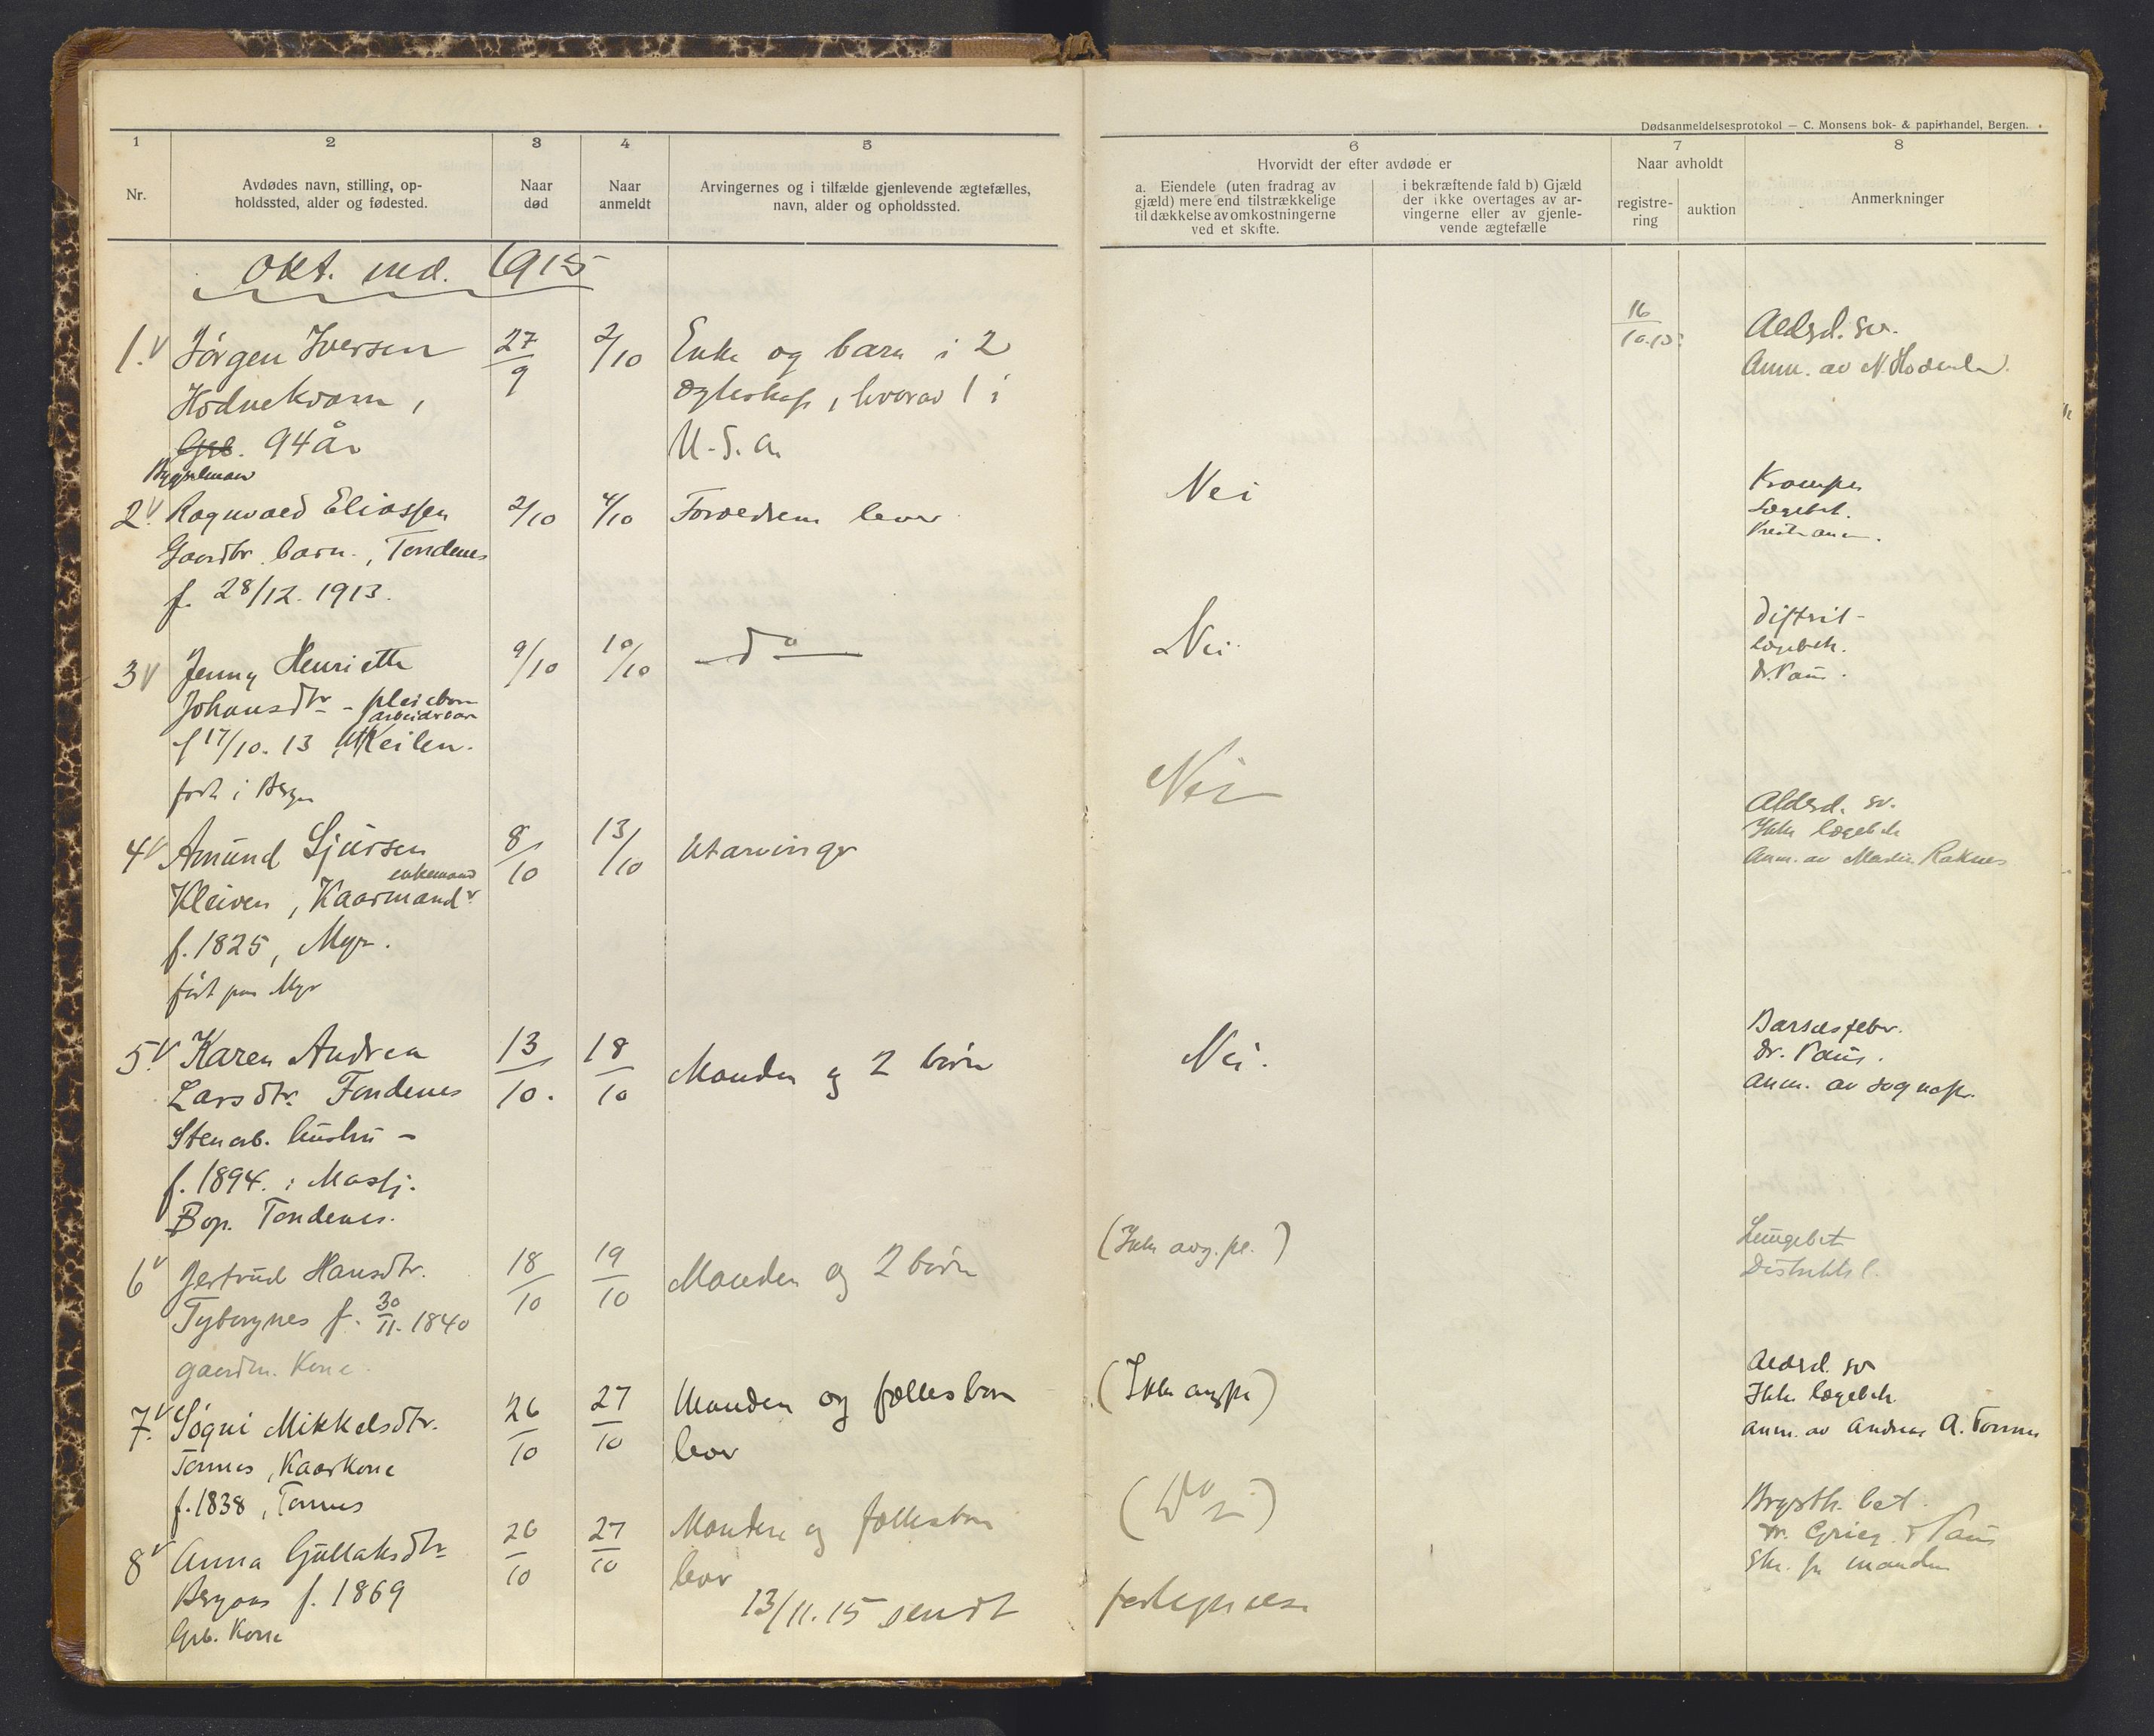 Dødsanmeldelsesprotokol — C. Monsens bok- & papirhandel, Bergen.
1 2 3 4 5 6 7 8
Nr.
Avdødes navn, stilling, op-
holdssted, alder og fødested.
Naar
død
Naar
anmeldt
Arvingernes og i tilfælde gjenlevende ægtefælles,
navn, alder og opholdssted.
Hvorvidt der efter avdøde er
a. Eiendele (uten fradrag av
gjæld) mere end tilstrækkelige
til dækkelse av omkostningerne
ved et skifte.
i bekræftende fald b) Gjæld
der ikke overtages av ar-
vingerne eller av gjenle-
vende ægtefælle
Naar avholdt
registre-
ring
auktion
Anmerkninger
Okt. md. 1915
1. Jørgen Iversen
Hodnekvam,
Grb. 94 år
27/9
2/10
Enke og barn i 2
ægteskap, hvorav 1 i
U.S.A.
16/10.15
Aldrd. sv.
Anm. av N.
2. Ragnvald Eliassen
Gaardbr. barn, Tondenes
f. 28/12. 1913.
2/10
4/10
Foreldrene lever
Nei
Krampe
Lægebeh.
3 Jenny Henriette
Johansdtr - pleiebarn
arbeiderbarn
f 17/10. 13
født i Bergen
9/10
10/10
do
Nei
Distrikt-
lægebeh.
dr. Paus.
4 Amund Sjursen
enkemand
Kleiven, Kaarmand
f. 1825, Myr.
født paa Myr
8/10
13/10
Utarvinger
Nei
Alderd. sv.
Ikke lægebeh
Anm. av Martin Raknes
5. Karen Andrea
Larsdtr. Tondenes
Stenarb. hustru -
f. 1894. i Masfj.
Bop. Tondenes.
13/10.
18/10
Manden og 2 børn
Nei.
Barselsfeber.
Dr. Paus.
Anm. av sognepr.
6 Jertrud Hansdtr.
f. 30/11. 1840
gaardm. Kone
18/10
19/10
Manden og 2 børn
(Ikke avg.pl.)
Lungebet
Distriktsl.
7. Søgni Mikkelsdtr.
Tonnes, Kaarkone
f. 1838, Tonnes
26/10
27/10
Manden og fællesbarn
lever
(Ikke avgpl)
Aldrd. sv
Ikke lægebeh.
anm. av Andreas A. Tonnes
8 Anna Gullaksdtr
f. 1869
Grb. Kone
26/10
27/10
Manden og fællesbarn
lever
Brysth. bet.
Dr. Grieg & Paus
Skr. fra manden
13/11. 15 sendt